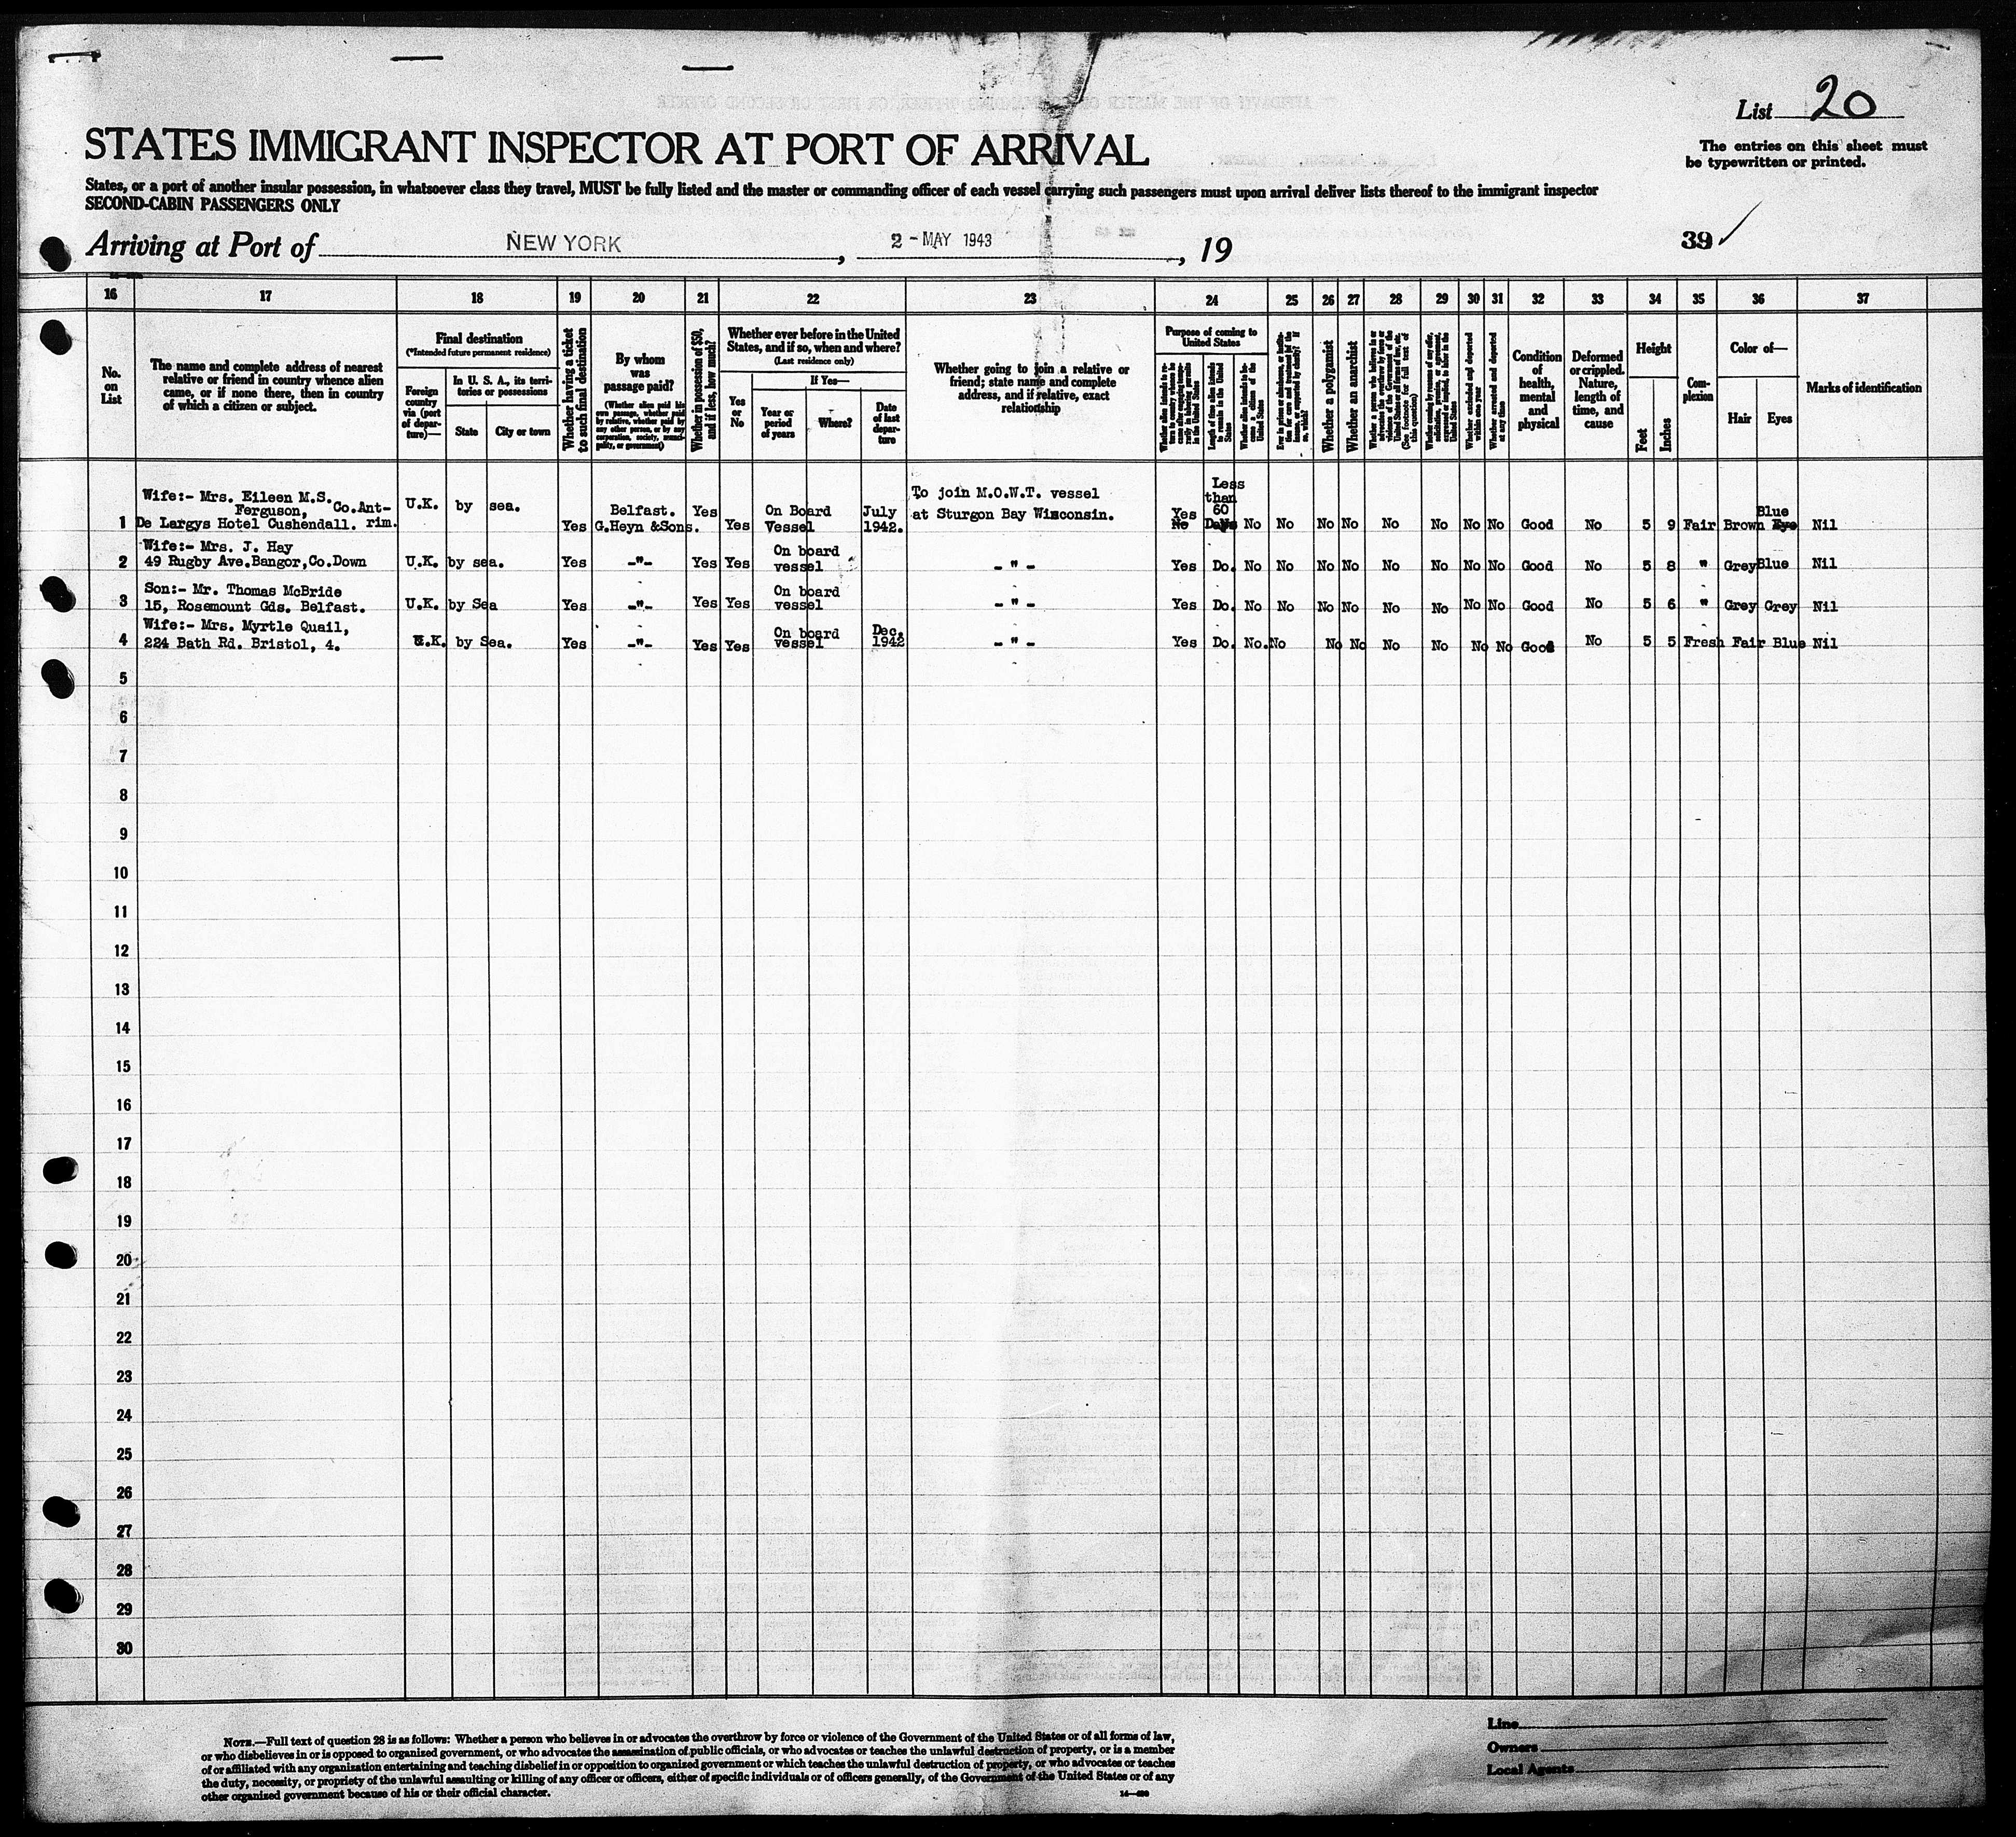 List 20
STATES IMMIGRANT INSPECTOR AT PORT OF ARRIVAL
The entries on this sheet must
be typewritten or printed.
States, or a port of another insular possession, in whatsoever class they travel, MUST be fully listed and the master or commanding officer of each vessel carrying such passengers must upon arrival deliver lists thereof to the immigrant inspector
SECOND-CABIN PASSENGERS ONLY
Arriving at Port of NEW YORK, 2 - MAY 1943, 19
39
16 17 18 19 20 21 22 23 24 25 26 27 28 29 30 31 32 33 34 35 36 37
No.
on
List
The name and complete address of nearest
relative or friend in country whence alien
came, or if none there, then in country
of which a citizen or subject.
Final destination
(*Intended future permanent residence)
Foreign
country
via (port
of depar-
ture)—
In U. S. A., its terri-
tories or possessions
State
City or town
Whether having a ticket
to such final destination
By whom
was
passage paid?
(Whether alien paid his
own passage, whether paid
by relative, whether paid by
any other person, or by any
corporation, society, munici-
pality, or government)
Whether in possession of $50,
and if less, how much?
Whether ever before in the United
States, and if so, when and where?
(Last residence only)
Yes
or
No
If Yes—
Year or
period
of years
Where?
Date
of last
depar-
ture
Whether going to join a relative or
friend; state name and complete
address, and if relative, exact
relationship
Purpose of coming to
United States
Whether alien intends to re-
turn to country whence he
came after engaging tempo-
rarily in laboring pursuits
in the United States
Length of time alien intends
to remain in the United
States
Whether alien intends to be-
come a citizen of the
United States
Ever in prison or almshouse, or institu-
tion for care and treatment of the
insane, or supported by charity? If
so, which?
Whether a polygamist
Whether an anarchist
Whether a person who believes in or
advocates the overthrow by force or
violence of the Government of the
United States or all forms of law, etc.
(See footnote for full text of
this question)
Whether coming by reason of any offer,
solicitation, promise, or agreement,
expressed or implied, to labor in the
United States
Whether excluded and deported
within one year
Whether arrested and deported
at any time
Condition
of
health,
mental
and
physical
Deformed
or crippled.
Nature,
length of
time, and
cause
Height
Feet
Inches
Com-
plexion
Color of—
Hair
Eyes
Marks of identification
Wife:- Mrs. Eileen M.S.
Ferguson, Co.Ant-
1 De Largys Hotel Cushendall. rim. U.K. by sea. Yes Belfast. G.Heyn &Sons. Yes Yes On Board Vessel July 1942. To join M.O.W.T. vessel at Sturgon Bay Wisconsin. Yes No Less than 60 Days No No No No No No No No Good No 5 9 Fair Brown Blue Eye Nil
Wife:- Mrs. J. Hay
2 49 Rugby Ave.Bangor,Co.Down U.K. by sea. Yes -"- Yes Yes On board vessel - " - Yes Do. No No No No No No No No Good No 5 8 " Grey Blue Nil
Son:- Mr. Thomas McBride
3 15, Rosemount Gds. Belfast. U.K. by Sea Yes -"- Yes Yes On board vessel - " - Yes Do. No No No No No No No No Good No 5 6 " Grey Grey Nil
Wife:- Mrs. Myrtle Quail,
4 224 Bath Rd. Bristol, 4. U.K. by Sea. Yes -"- Yes Yes On board vessel Dec. 1942 - " - Yes Do. No. No No No No No No No Good No 5 5 Fresh Fair Blue Nil
5
6
7
8
9
10
11
12
13
14
15
16
17
18
19
20
21
22
23
24
25
26
27
28
29
30
NOTE.—Full text of question 28 is as follows: Whether a person who believes in or advocates the overthrow by force or violence of the Government of the United States or of all forms of law,
or who disbelieves in or is opposed to organized government, or who advocates the assassination of public officials, or who advocates or teaches the unlawful destruction of property, or is a member
of or affiliated with any organization entertaining and teaching disbelief in or opposition to organized government or which teaches the unlawful destruction of property, or who advocates or teaches
the duty, necessity, or propriety of the unlawful assaulting or killing of any officer or officers, either of specific individuals or of officers generally, of the Government of the United States or of any
other organized government because of his or their official character.
Line
Owners
Local Agents